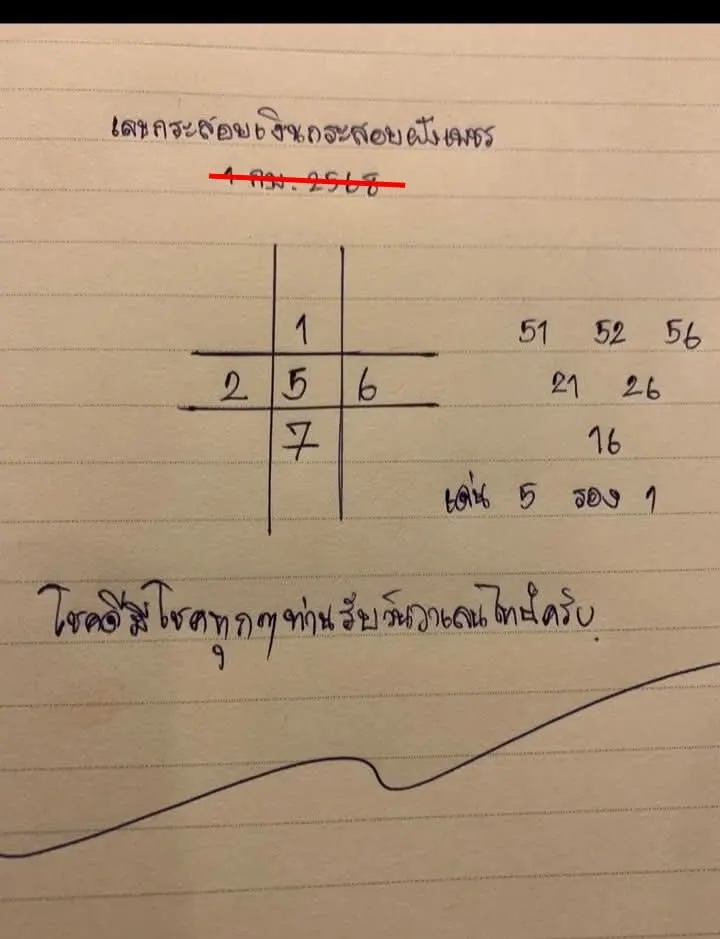 เลขกระสอบเงินกระสอบฝังเพชร
1 กพ. 2568
1
2 5 6
7
51 52 56
21 26
16
เด่น 5 รอง 1
โชคดีมีโชคทุกๆท่านรับวันวาเลนไทน์ครับ